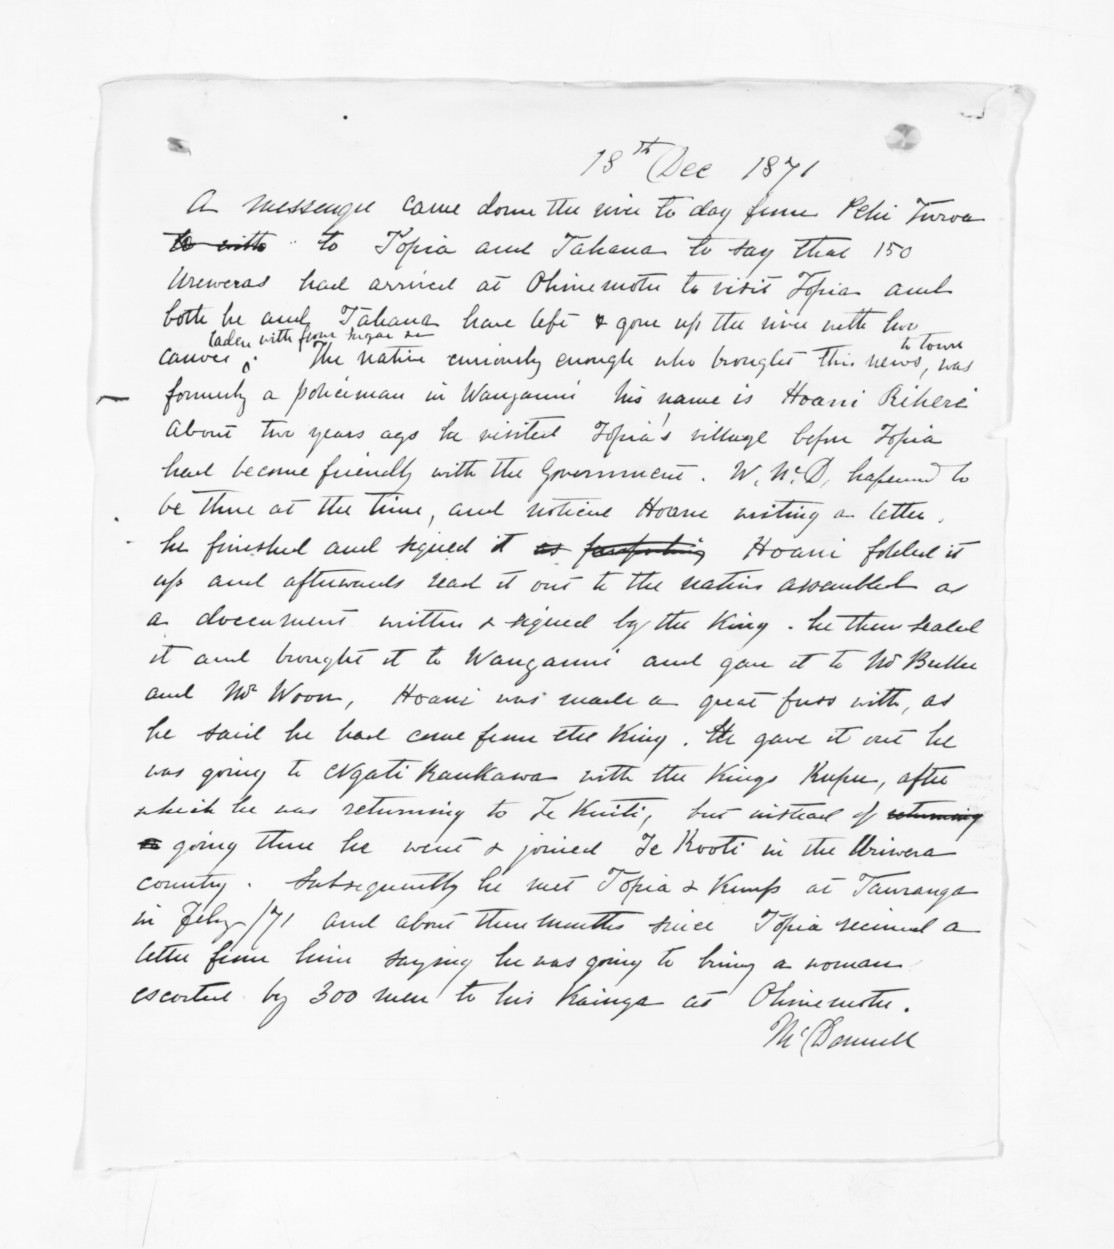 18th Dec 1871
A messenger came down the river to day from Pehi Turoa
to with to Topia and Tahana to say that 150
Ureweras had arrived at Ohinemotu to visit Topia and
both he and Tahana have left & gone up the river with two
laden with flour sugar &c to town
canoes. The native curiously enough who brought this news, was
formerly a policeman in Wanganui his name is Hoani Riheri
About two years ago he visited Topia's village before Topia
had become friendly with the Government. W. McD, hapened to
be there at the time, and noticed Hoani writing a letter.
he finished and signed it as purporting Hoani folded it
up and afterwards read it out to the natives assembled as
a document written & signed by the King. he then sealed
it and brought it to Wanganui and gave it to Mr Buller
and Mr Woon, Hoani was made a great fuss with, as
he said he had come from the King. He gave it out he
was going to Ngati Raukawa with the Kings Kupu, after
which he was returning to Te Kuiti, but instead of returning
going there he went & joined Te Kooti in the Uriwera
country. Subsequently he met Topia & Kemp at Tauranga
in Feby /71 and about three months since Topia received a
letter from him saying he was going to bring a woman
escorted by 300 men to his Kainga at Ohinemotu.
McDonnell